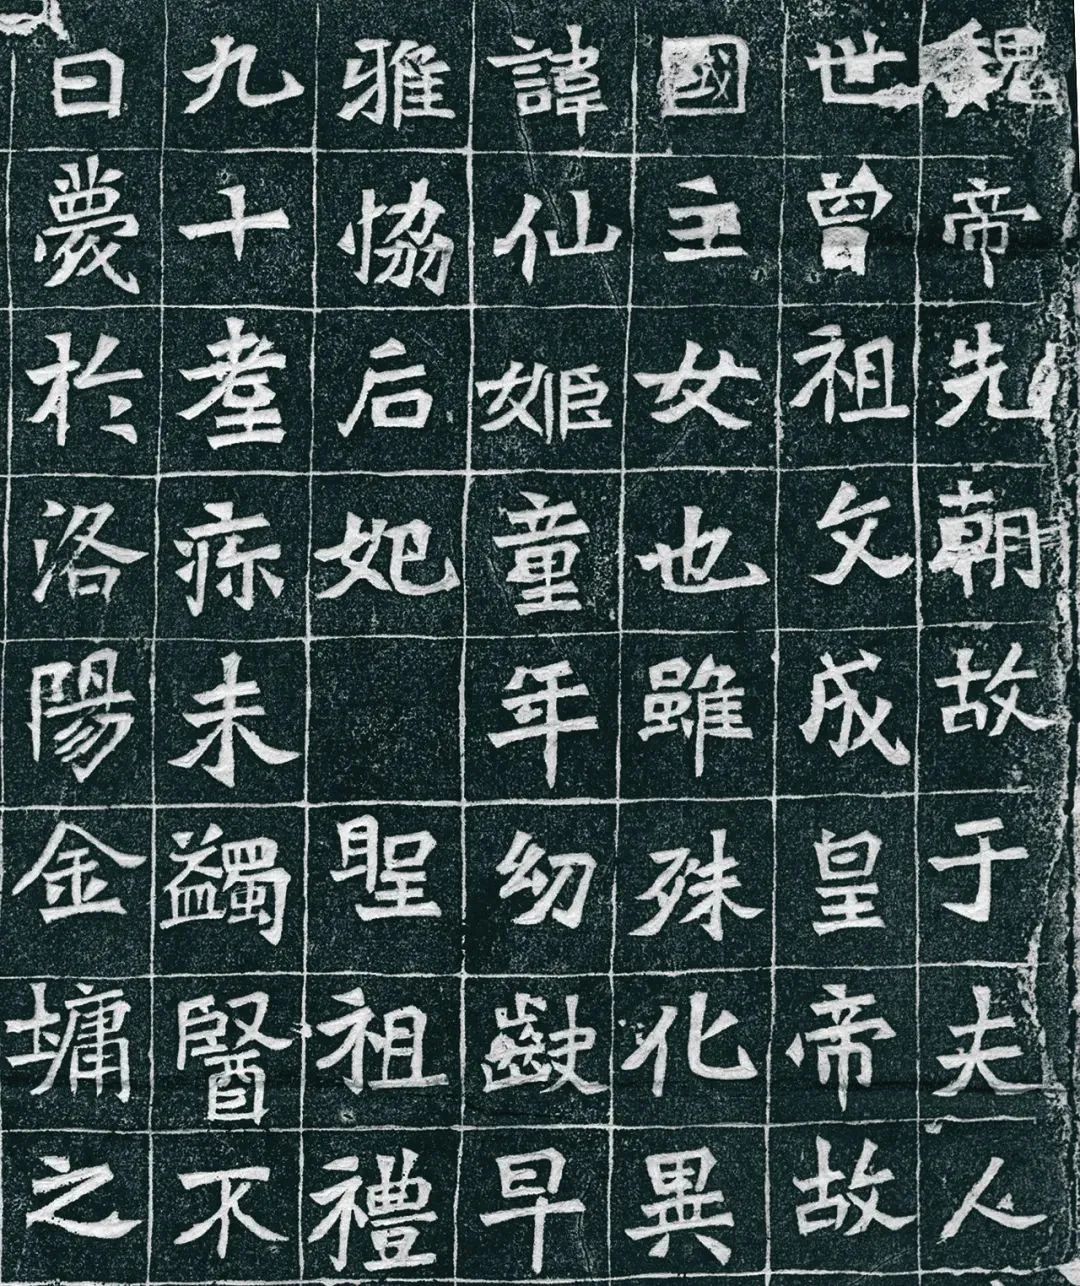 魏帝先朝故于夫人
世曾祖文成皇帝故
國主女也雖殊化異
諱仙姬童年幼齔早
雅恊后妃　聖祖禮
九十耋疹未蠲醫不
日薨於洛陽金墉之